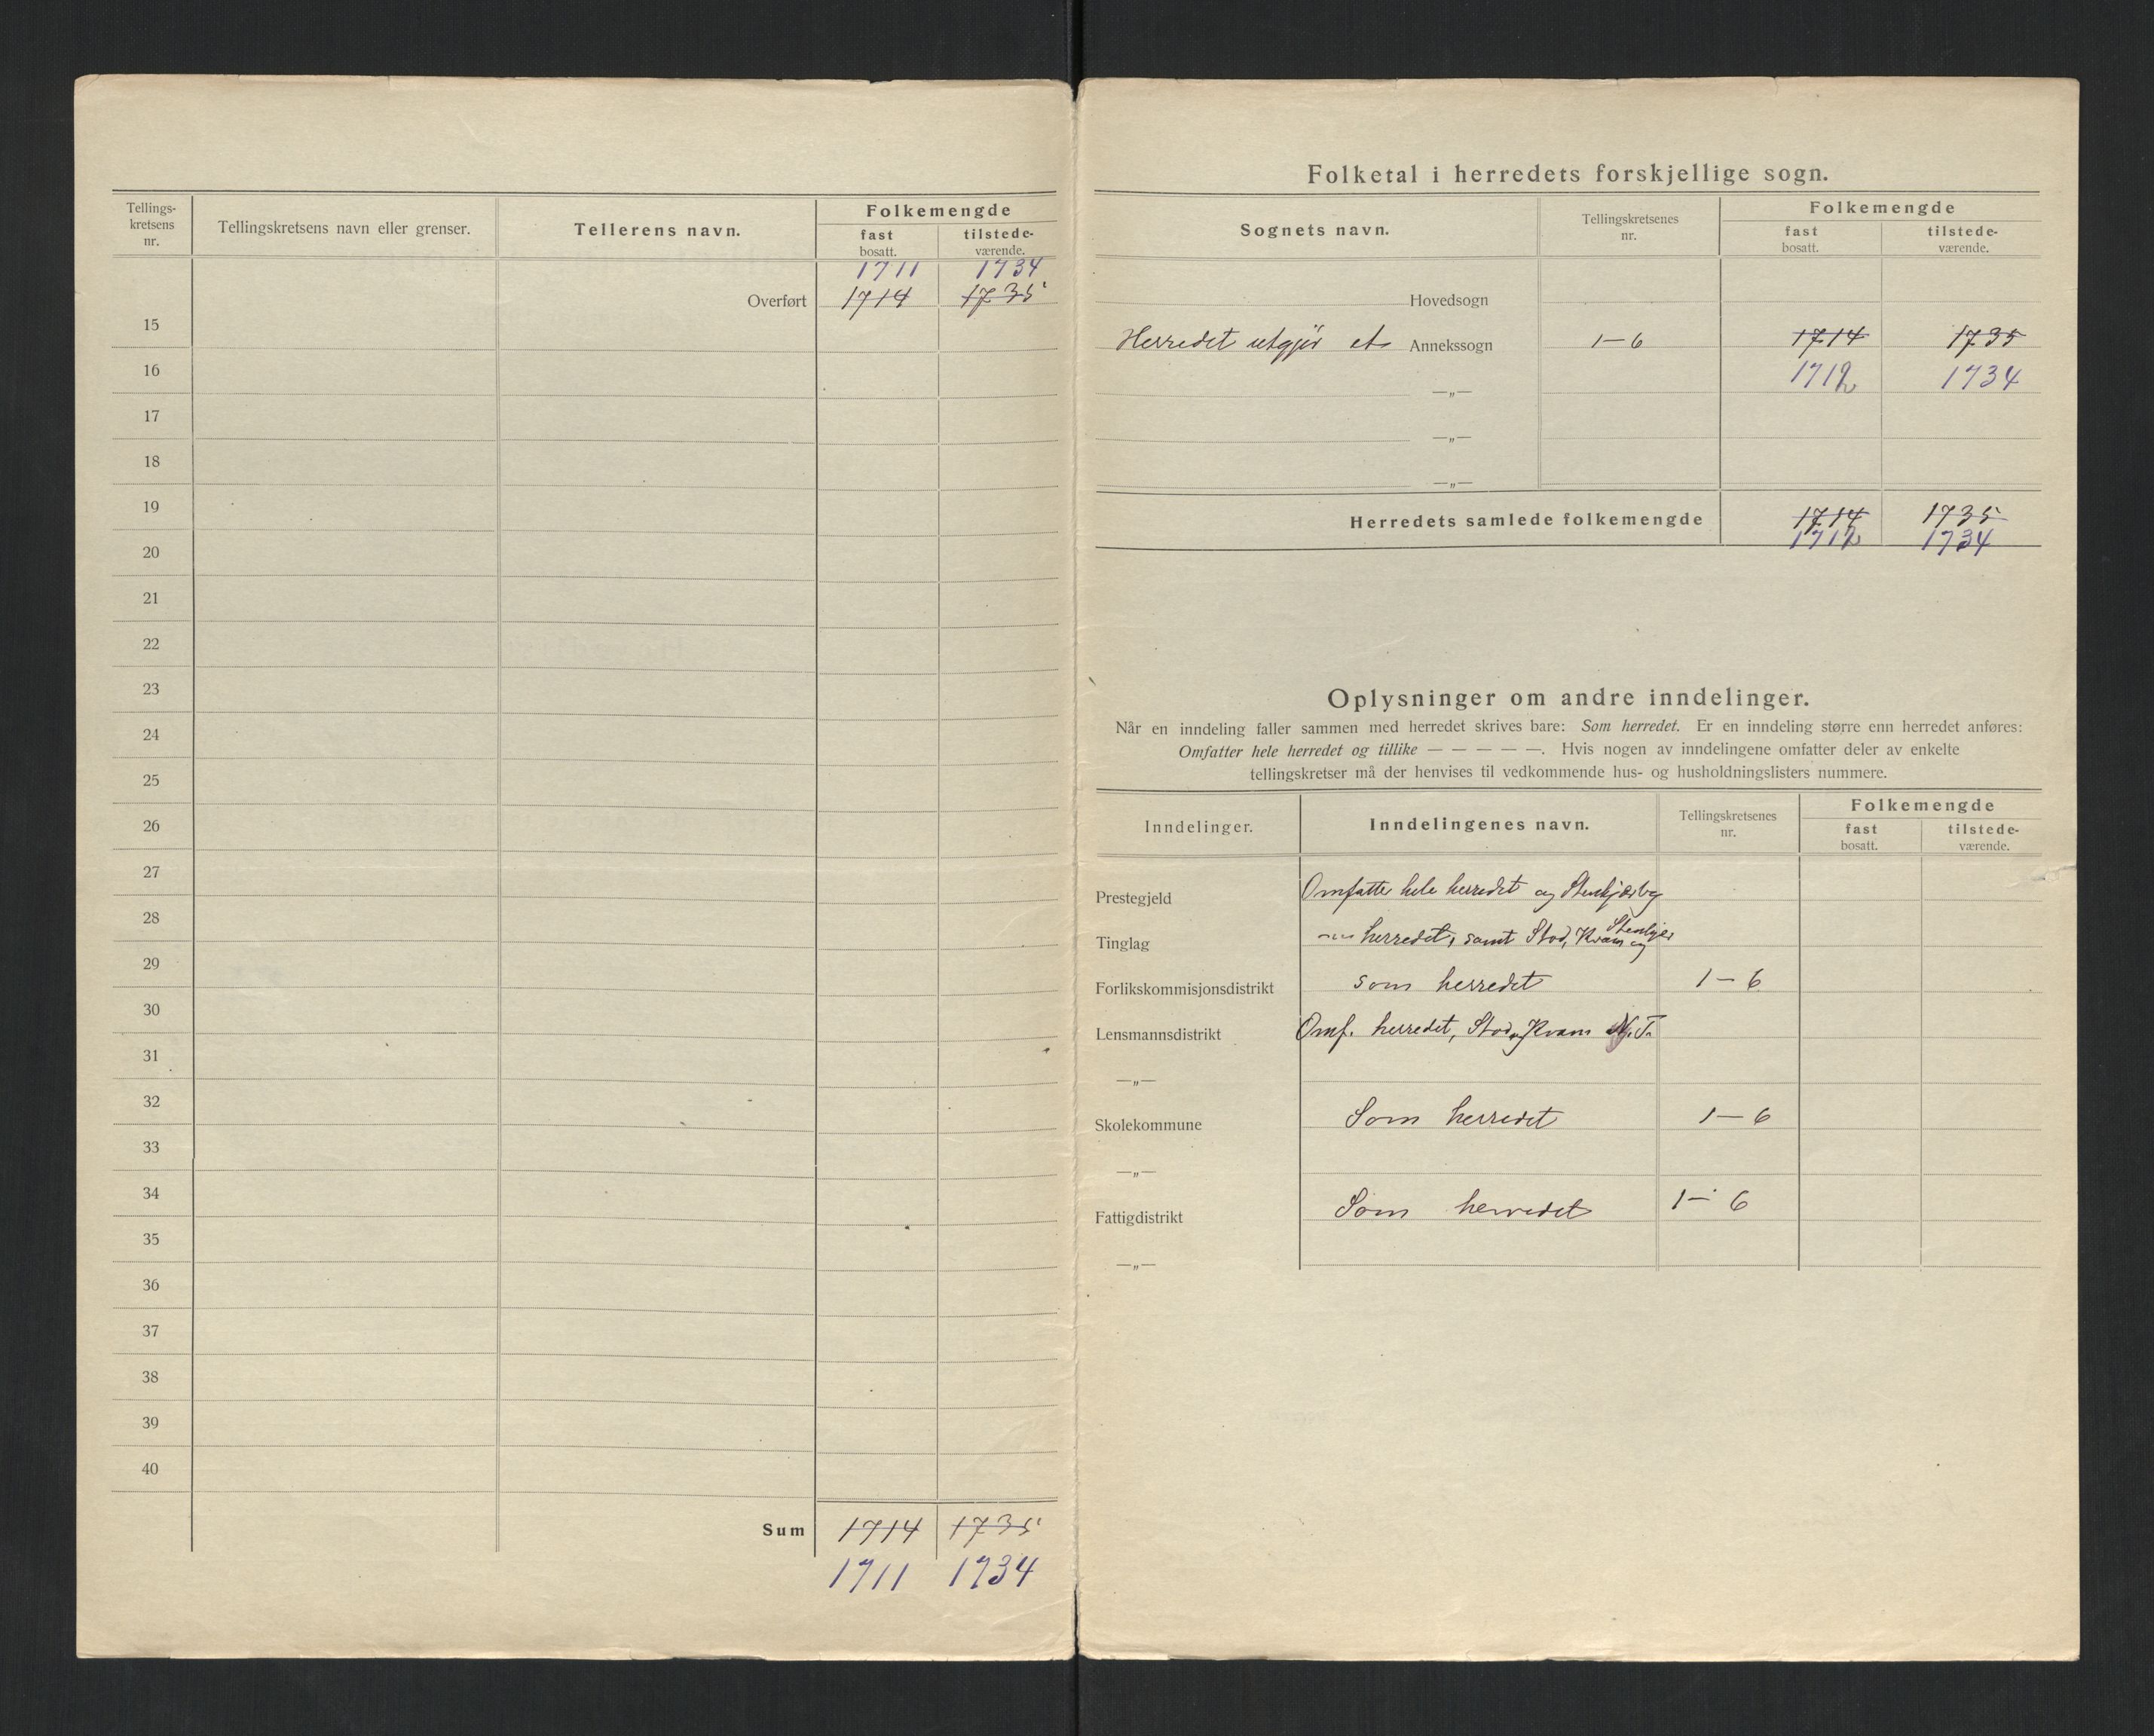 Tellings-
kretsens
nr.
Tellingskretsens navn eller grenser.
Tellerens navn.
Folkemengde
fast
bosatt.
tilstede-
værende.
1711 1734
Overført 1714 1735
15
16
17
18
19
20
21
22
23
24
25
26
27
28
29
30
31
32
33
34
35
36
37
38
39
40
Sum 1714 1735
1711 1734
Folketal i herredets forskjellige sogn.
Sognets navn.
Tellingskretsenes
nr.
Folkemengde
fast
bosatt.
tilstede-
værende.
Hovedsogn
Herredet utgjør et Annekssogn 1–6 1714 1735
—„— 1712 1734
—„—
—„—
Herredets samlede folkemengde 1714 1735
1712 1734
Oplysninger om andre inndelinger.
Når en inndeling faller sammen med herredet skrives bare: Som herredet. Er en inndeling større enn herredet anføres:
Omfatter hele herredet og tillike — — — — —. Hvis nogen av inndelingene omfatter deler av enkelte
tellingskretser må der henvises til vedkommende hus- og husholdningslisters nummere.
Inndelinger.
Inndelingenes navn.
Tellingskretsenes
nr.
Folkemengde
fast
bosatt.
tilstede-
værende.
Prestegjeld Omfatter hele herredet og Stenkjær by
Tinglag —„— herredet, samt Stod, Kvam og Stenkjer
Forlikskommisjonsdistrikt som herredet 1–6
Lensmannsdistrikt Omf. herredet, Stod, Kvam N.T.
—„—
Skolekommune Som herredet 1–6
—„—
Fattigdistrikt Som herredet 1–6
—„—